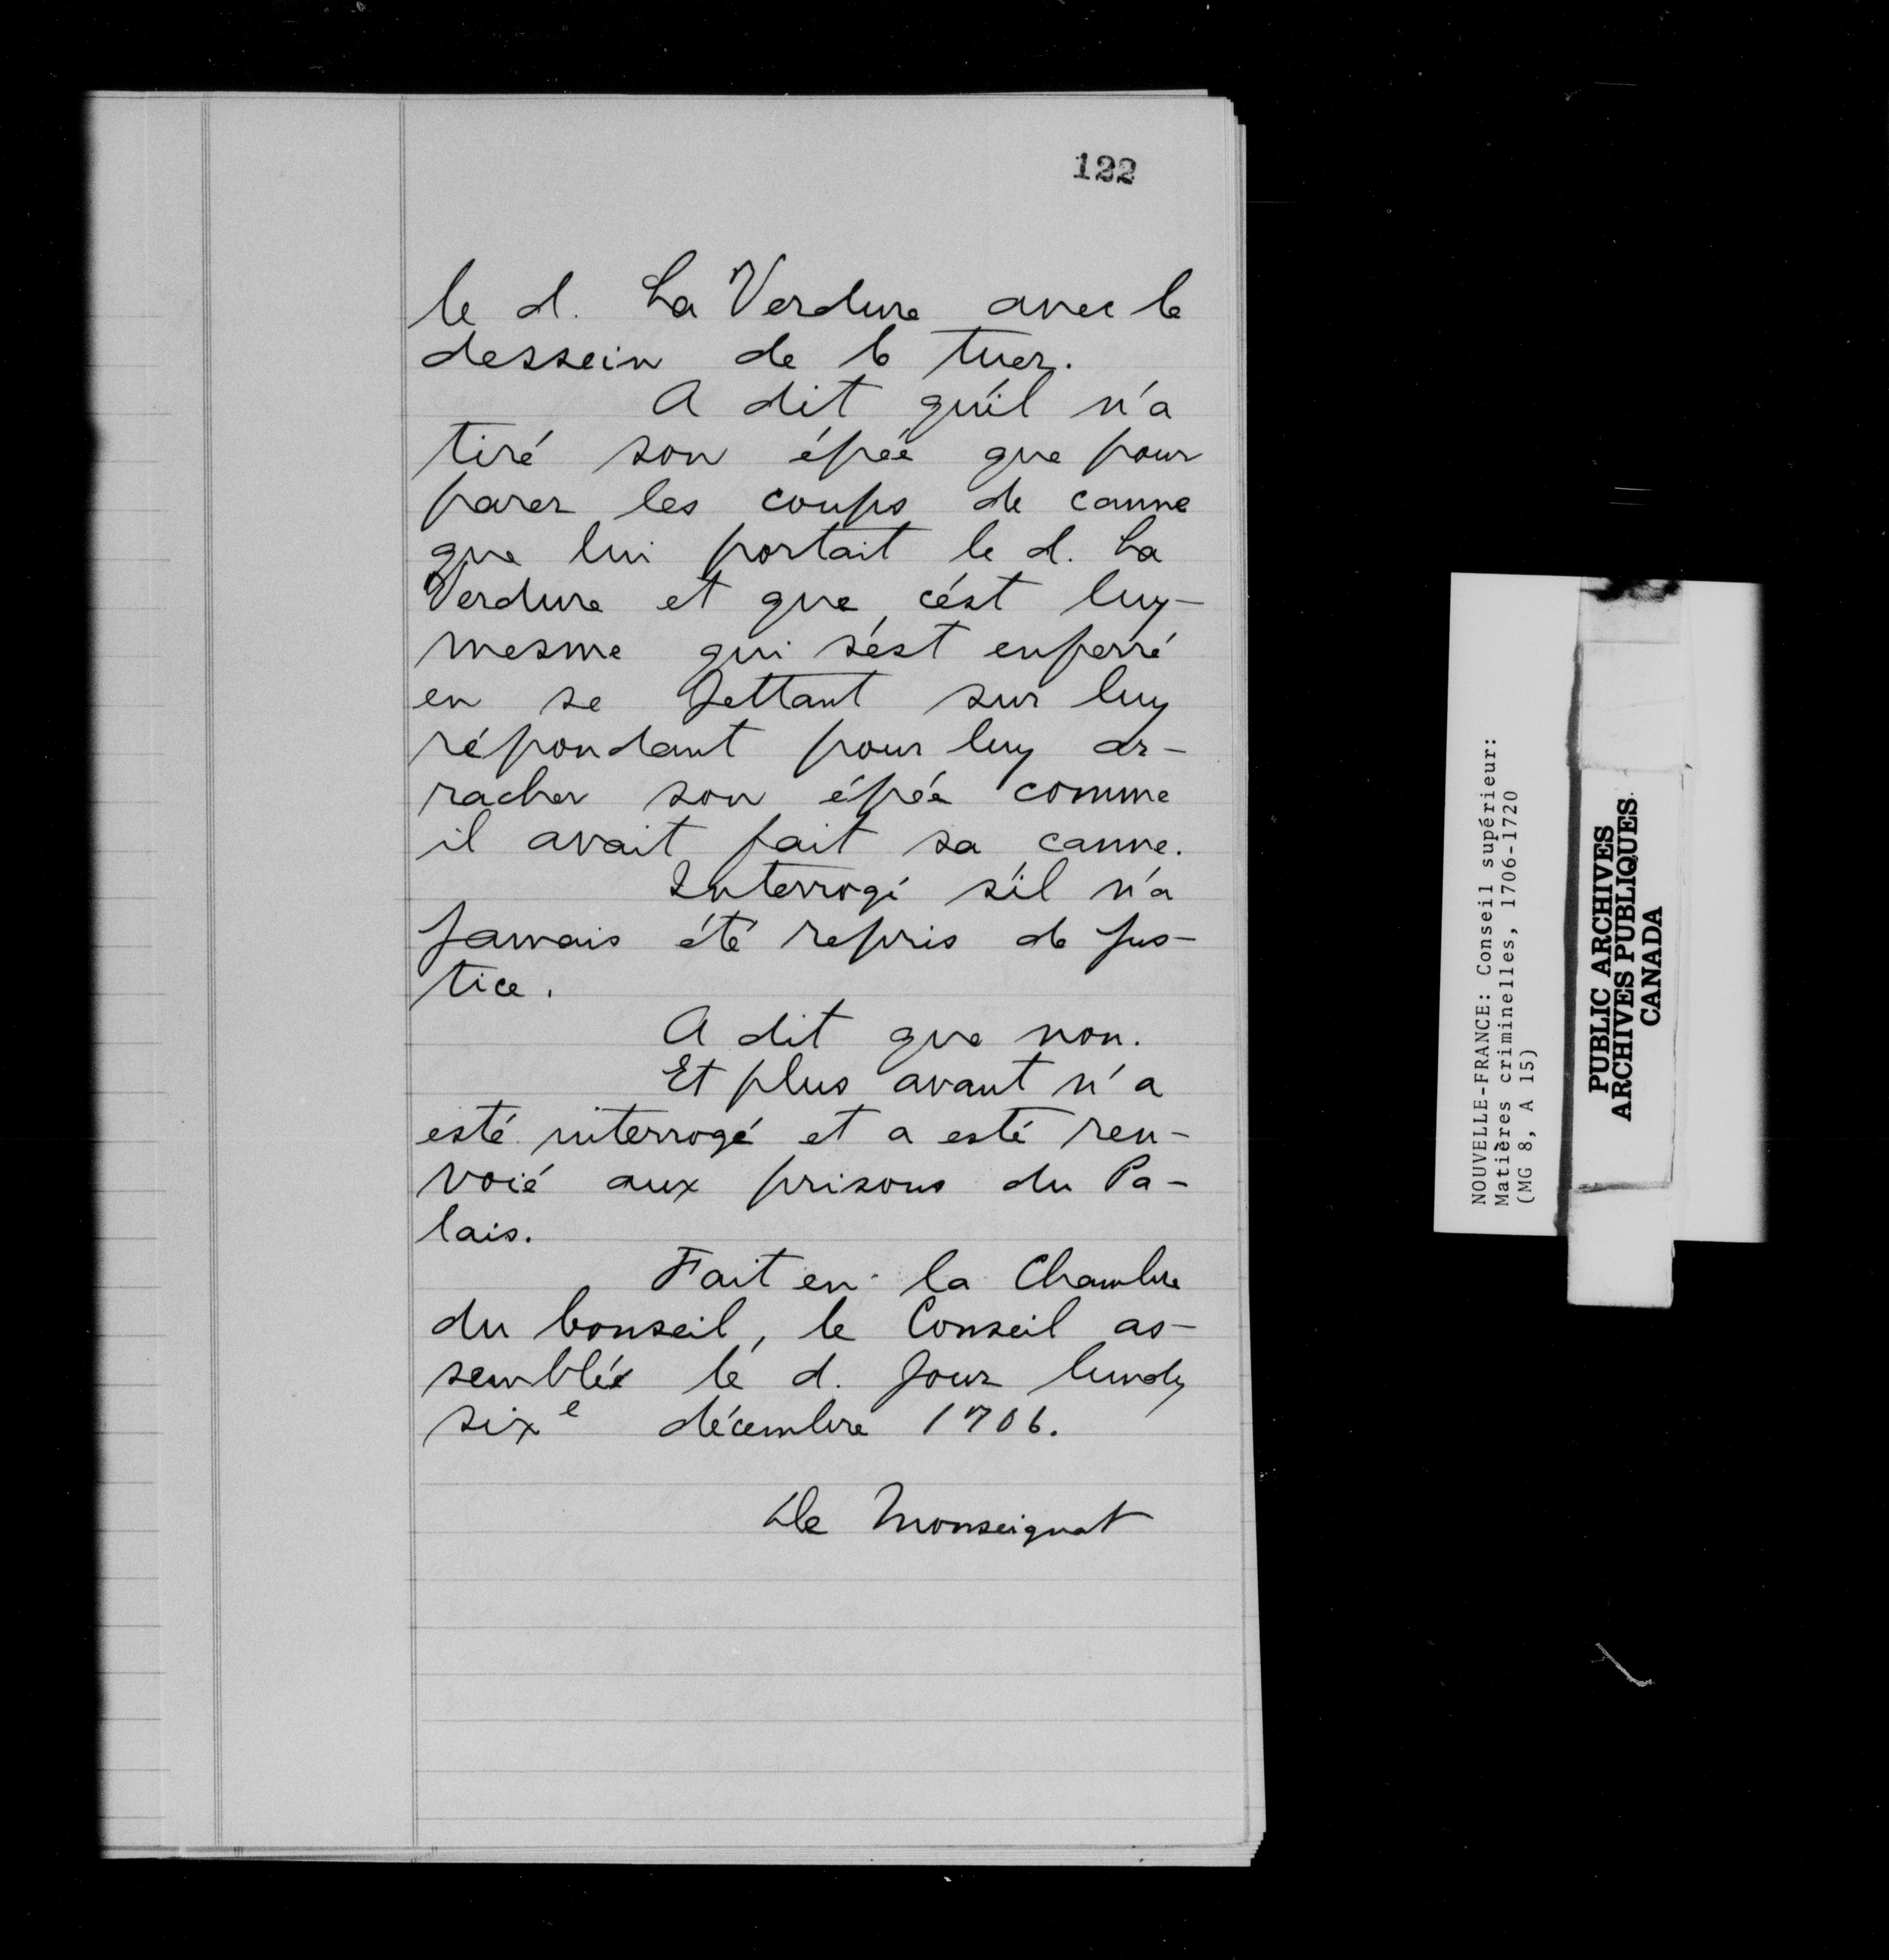 122
le d. La Verdure avec le
dessein de le tuer.
A dit qu'il n'a
tiré son épée que pour
parer les coups de canne
que lui portait le d. La
Verdure et que c'est luy-
mesme qui s'est enferré
en se Jettant sur luy
répondant pour luy ar-
racher son épée comme
il avait fait sa canne.
Interrogé s'il n'a
Jamais été repris de Jus-
tice.
A dit que non.
Et plus avant n'a
esté interrogé et a esté ren-
voié aux prisons du Pa-
lais.
Fait en la Chambre
du Conseil, le Conseil as-
semblée le d. Jour lundy
sixe décembre 1706.
De Monseignat
NOUVELLE-FRANCE: Conseil supérieur:
Matières criminelles, 1706-1720
(MG 8, A 15)
PUBLIC ARCHIVES
ARCHIVES PUBLIQUES
CANADA